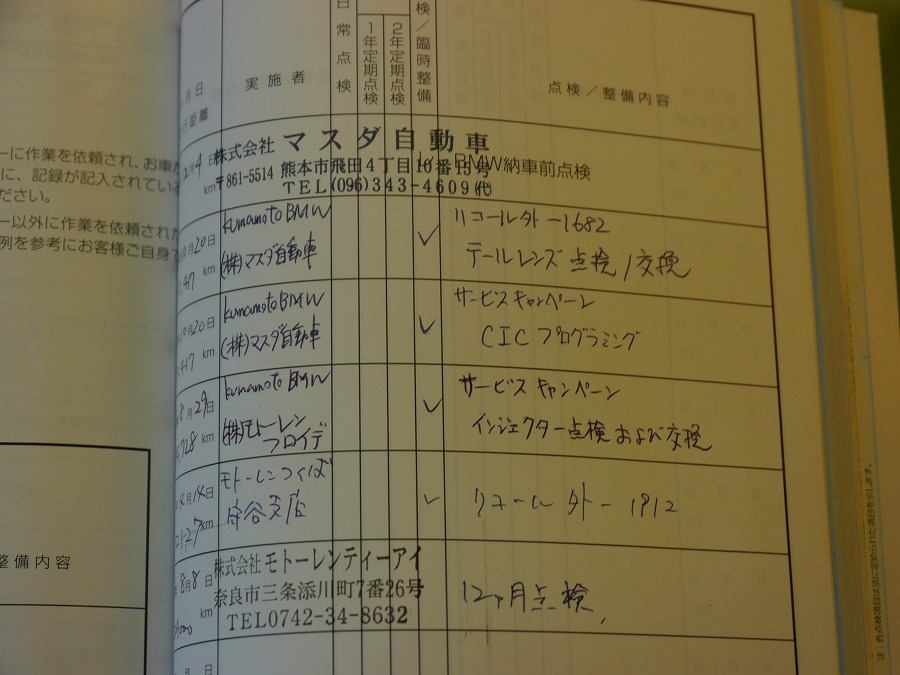 日常点検
1年定期点検
2年定期点検
検/臨時整備
月日
行距離
実施者
点検/整備内容
ーに作業を依頼され、お車が
に、記録が記入されている
ださい。
ー以外に作業を依頼された
例を参考にお客様ご自身で
整備内容
月4日
株式会社 マスダ自動車
〒861-5514 熊本市飛田4丁目10番15号
TEL(096)343-4609(代)
BMW納車前点検
10月20日
kumamoto BMW
(株)マスダ自動車
km
✓
リコール外-1682
テールレンズ 点検/交換
10月20日
kumamoto BMW
(株)マスダ自動車
km
✓
サービスキャンペーン
CIC プログラミング
8月29日
kumamoto BMW
(株)モトーレン
フロイデ
km
✓
サービス キャンペーン
インジェクター点検 および交換
月14日
モトーレンつくば
守谷支店
km
✓
リコール 外-1912
8月8日
株式会社 モトーレンティーアイ
奈良市三条添川町7番26号
TEL0742-34-8632
km
12ヶ月点検
月 日
注:各点検項目は法に定められた項目を示します。